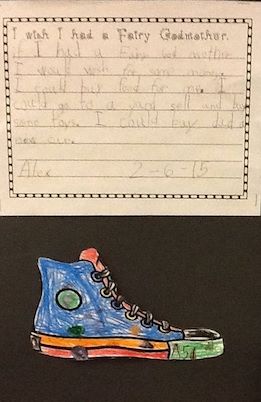 I wish I had a Fairy Godmother.
if I had a fairy god mother
I would wish for some money.
I could buy food for me. I
could go to a yard sell and buy
some toys. I could buy dad a
new car.
Alex 2-6-15